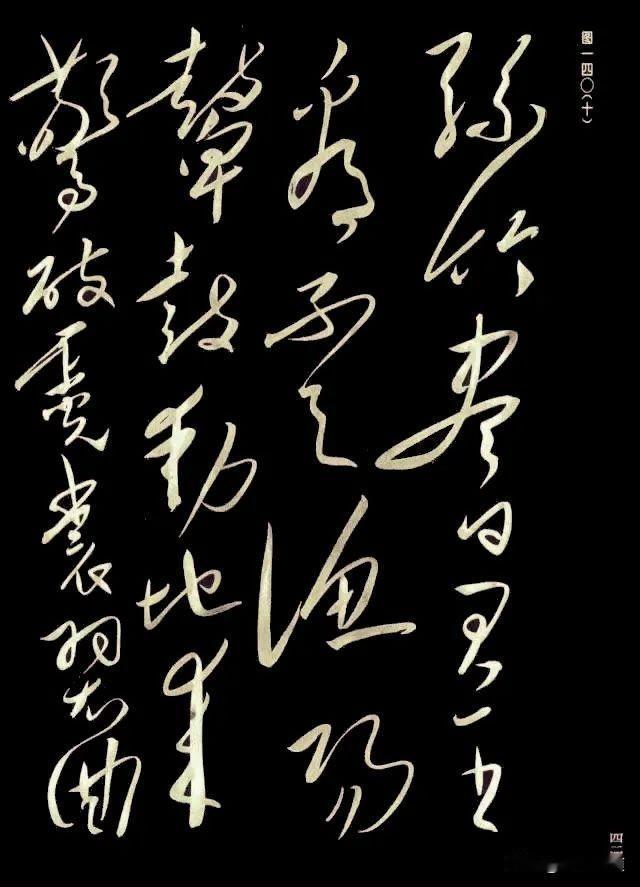 图一四〇(十)
絲竹盡日君王
看不足漁陽
鼙鼓動地來
驚破霓裳羽衣曲